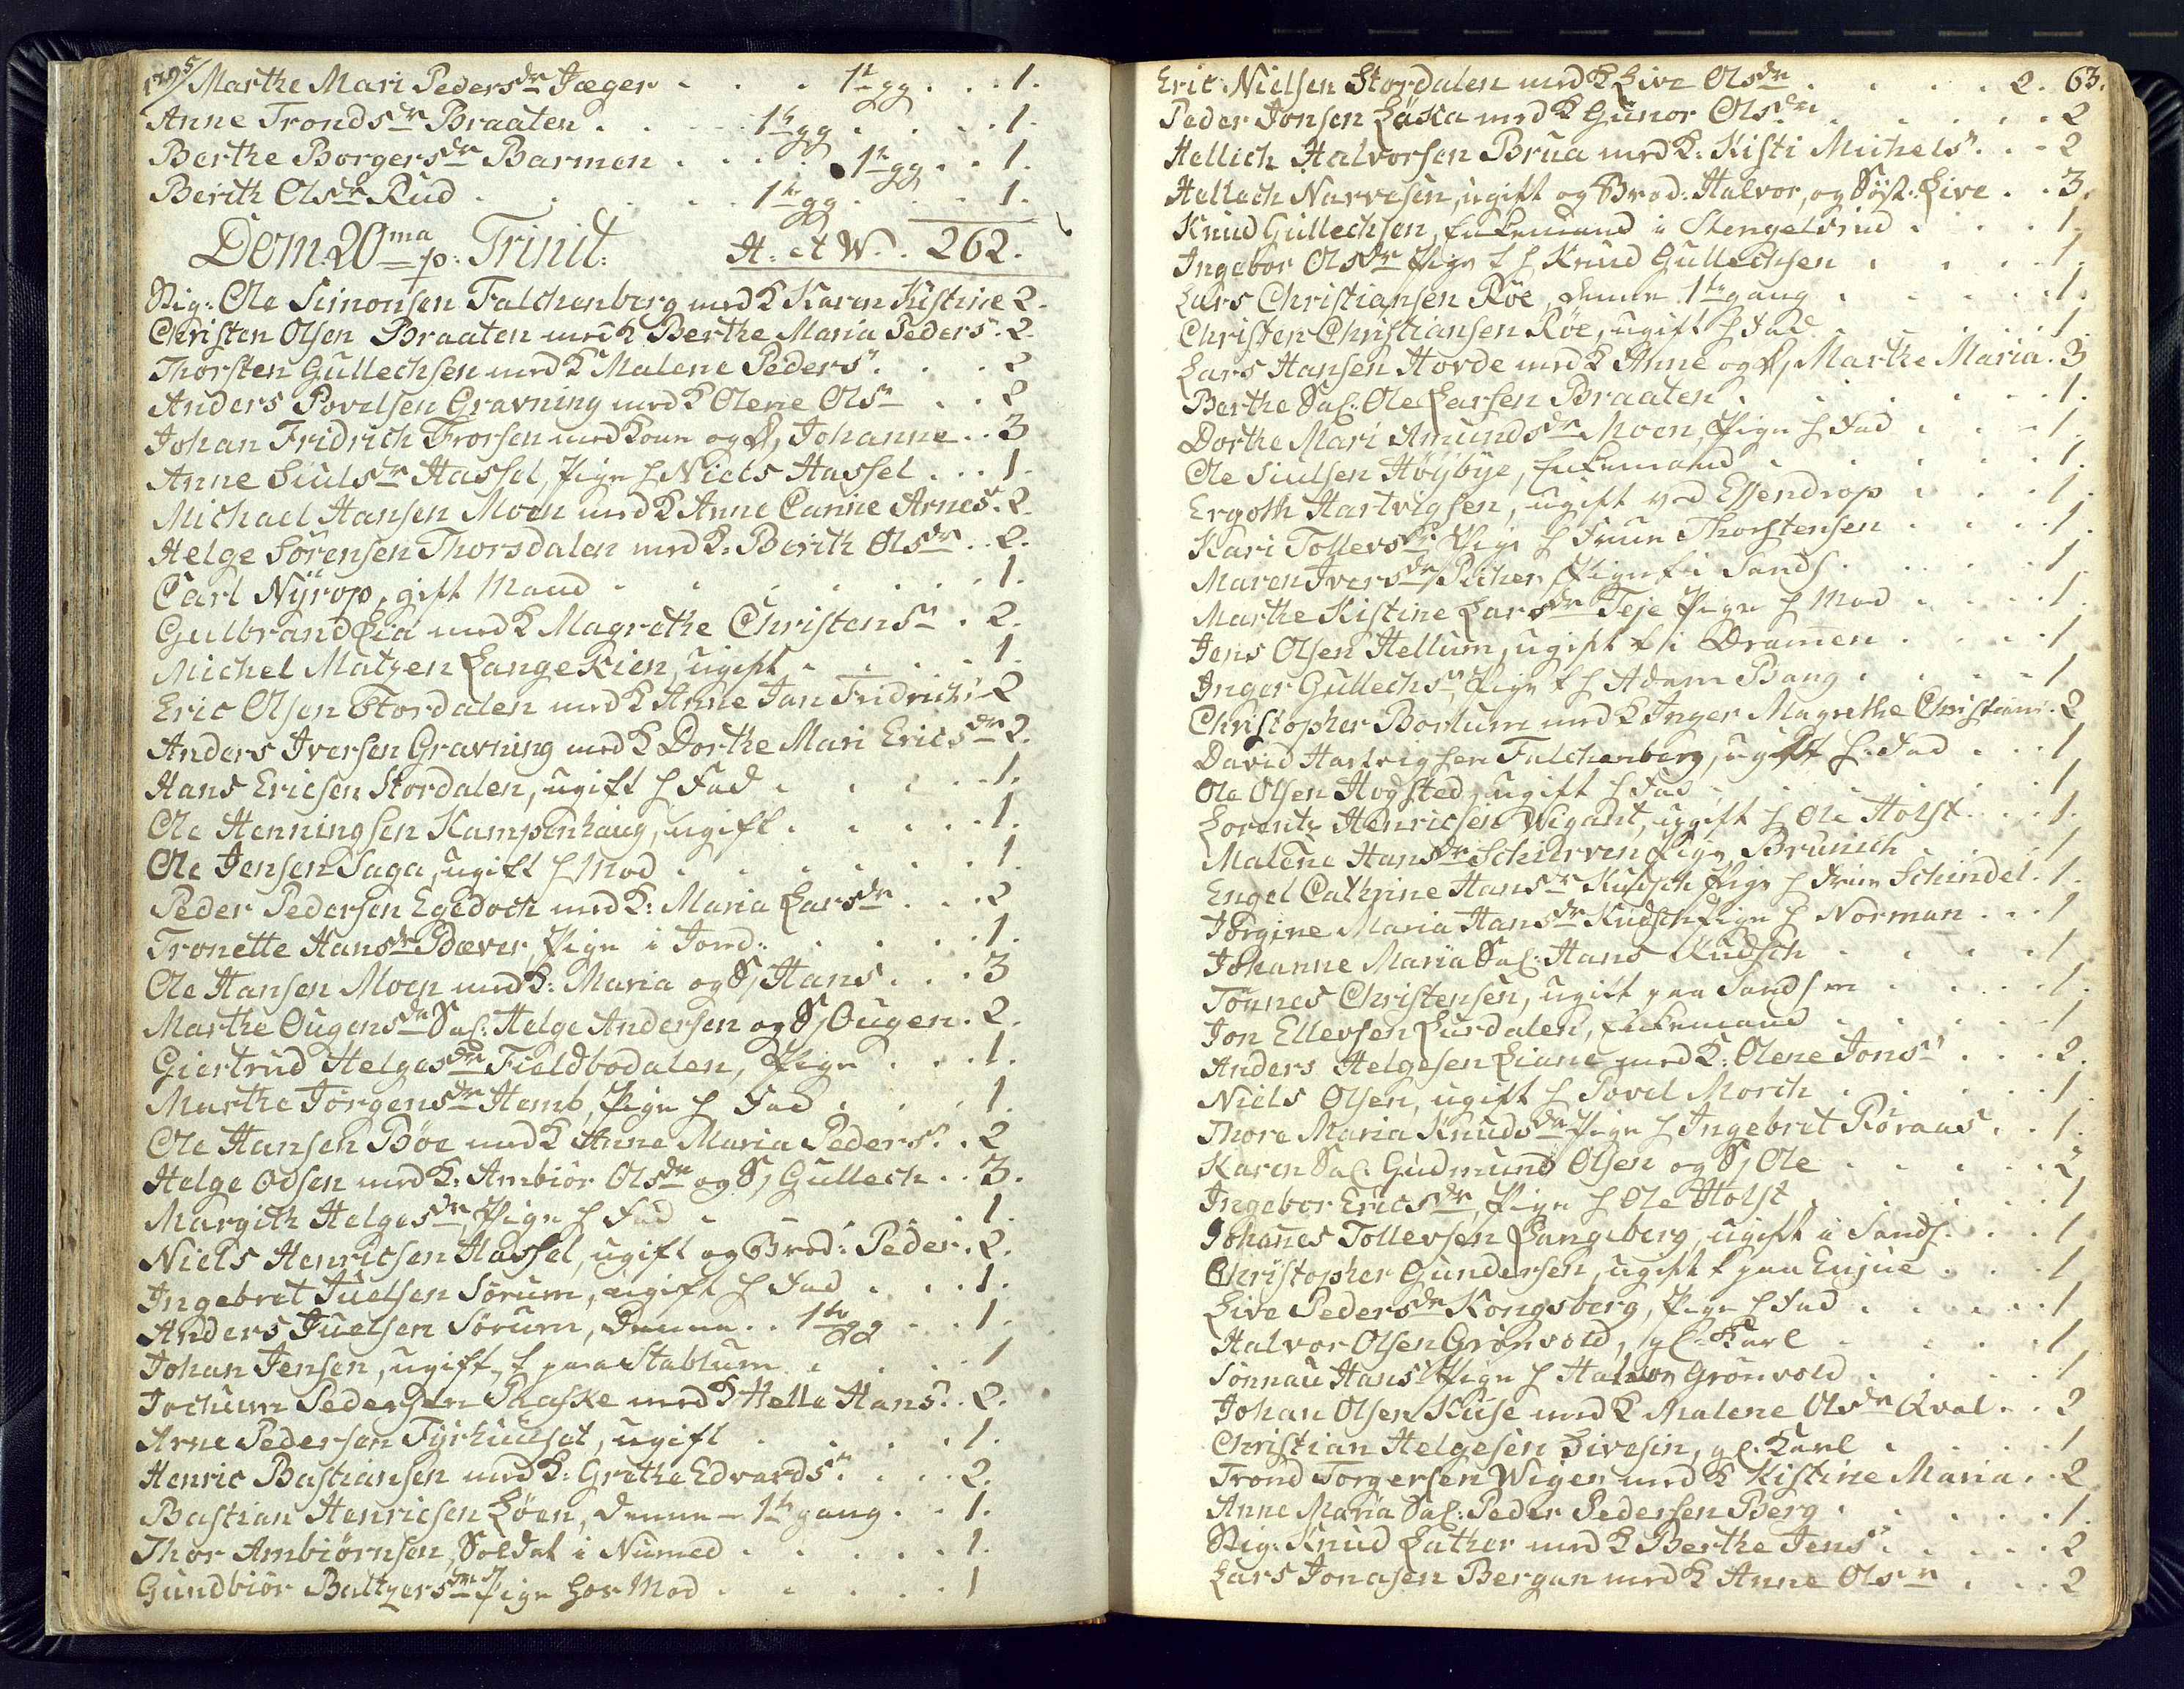 1795/ Marthe Mari Pedersdr Jæger . . . 1te gg . . . 1.
Anne Trondsdr Braaten . . . . 1te gg . . . . 1.
Berthe Borgersdr Barmen . . . . 1te gg . . . 1.
Berith Olsdr Rud . . . . . 1te gg . . . . 1.
Dom: 20ma p: Trinit: A: et W. . 262.
Stig: Ole Simonsen Falchenberg med K Karen Kistine 2.
Christen Olsen Braaten med K Berthe Maria Peders. 2.
Thorsten Gullechsen med K Malene Peders. . . . 2
Anders Povelsen Gravning med K Olene Ols . . 2
Johan Fridrich Frorsen med Kone og D, Johanne . . 3
Anne Siulsdr Hassel, Pige h Niels Hassel . . . 1.
Michael Hansen Moen med K Anne Canine Arnes. 2.
Helge Sörensen Thorsdalen med K: Berith Olsdr . . 2.
Carl Nÿrop, gift Mand . . . . . . . 1.
Gulbrand Lia med K Magrethe Christens . 2.
Michel Matzen Langekien, ugift . . . . . 1.
Eric Olsen Stordalen med K Anne Jan Fridrichs 2
Anders Iversen Gravning med K Dorthe Mari Ericsdr 2.
Hans Ericsen Stordalen, ugift h Fad . . . . . 1.
Ole Henningsen Kampenhaug, ugift . . . . . 1.
Ole Jensen Saga, ugift h Mod . . . . . . 1.
Peder Pedersen Egedoch med K: Maria Larsdr . . . 2
Tronette Hansdr Bæver, Pige i Jond: . . . . 1.
Ole Hansen Moen med K: Maria og S, Hans . . . 3
Marthe Ougensdr Sal: Helge Andersen og S, Ougen . 2.
Giertrud Helgesdr Fieldbodalen, Pige . . . 1.
Marthe Jörgensdr Hemb, Pige h Fad . . . . 1.
Ole Hansen Böe med K Anne Maria Peders. . 2
Helge Odsen med K: Ambiör Olsdr og S, Gullech . . 3.
Margith Helgesdr, Pige h Fad . . . . . 1.
Niels Henricsen Hassel, ugift og Brod: Peder . 2.
Ingebret Juelsen Sörum, ugift h Fad . . . 1.
Anders Juelsen Sörum, Denne . . 1te gg . . . 1.
Johan Jensen, ugift, t paa Stablum . . . . 1
Jochum Pedersen Skaske med K Helle Hans. . 2.
Arne Pedersen Tyrhuuset, ugift . . . . . 1.
Henric Bastiansen med K: Grethe Edvards. . . . 2.
Bastian Henricsen Löen, Denne - 1te gang . . 1.
Thor Ambiörnsen, Soldat i Numed . . . . . 1.
Gundbiör Baltzersdr Pige hos Mod . . . . . 1
Eric Nielsen Stordalen med K Live Olsdr . . . . . 2. 63.
Peder Jonsen Läska med K Gunor Olsdr . . . . . . 2
Hellich Halvorsen Brua med K: Kisti Michels. . . 2
Hellech Narvesen, ugift og Brod: Halvor, og Söst: Live . . 3.
Knud Gullechsen, Enkemand i Stengelsrud . . . 1.
Ingebor Olsdr Pige t h Knud Gullechsen . . . . 1.
Lars Christiansen Röe, Denne 1te gang . . . . . 1.
Christen Christiansen Röe, ugift h Fad . . . . . 1.
Lars Hansen Horde med K Anne og D, Marthe Maria . 3
Berthe Sal: Ole Larsen Braaten . . . . . . 1.
Dorthe Mari Amundsdr Moen, Pige h Fad . . . 1.
Ole Siulsen Höÿbye, Enkemand . . . . . . 1.
Ergoth Hartvigsen, ugift ved Essendrop . . . 1.
Kari Tollevsdr Pige h Frue Thorstensen . . . . 1.
Maren Iversdr Picher, Pige t i Sands . . . . . 1
Marthe Kistine Larsdr Teje Pige h Mod . . . . 1.
Jens Olsen Hellum, ugift t i Dramen . . . . 1
Inger Gullechs, Pige t h Adam Bang . . . . . 1
Christopher Bortum med K Inger Magrethe Christians. 2
David Hartvigsen Falchenberg, ugift h Fad . . . 1
Ole Olsen Hogsted, ugift h Fad . . . . . . 1
Lorentz Henricsen Wigant, ugift h Ole Holst . . . 1.
Malene Hansdr Schierven Pige, Brunich . . . . 1
Engel Cathrine Hansdr Kudsch Pige h Frue Schindel . 1.
Jörgine Maria Hansdr Kudsch Pige h Norman . . . 1
Johanne Maria Sal: Hans Kudsch . . . . . 1.
Tönnes Christensen, ugift paa Sandsv . . . . 1.
Jon Ellevsen Lurdalen, Enkemand . . . . . 1
Anders Helgesen Liane med K: Olene Jons . . . 2.
Niels Olsen, ugift h Povel Morch . . . . . 1.
Thore Maria Knudsdr Pige h Ingebret Röraas . . . 1.
Karen Sal: Gudmund Olsen og S, Ole . . . . . 2
Ingebor Ericsdr, Pige h Ole Holst . . . . . . 1
Johanes Tollevsen Langeberg, ugift i Sands . . . 1
Christopher Gundersen, ugift t paa Enjue . . . 1
Live Pedersdr Kongsberg, Pige h Fad . . . . . 1
Halvor Olsen Grönvold, gl. Karl . . . . . 1
Sonnau Hans Pige h Halvor Grönvold . . . . 1
Johan Olsen Kuse med K Malene Olsdr Qval . . . 2
Christian Helgesen Divesin, gl. Karl . . . . . 1
Trond Torgersen Wiger med K Kistine Maria . . 2
Anne Maria Sal: Peder Pedersen Berg . . . . . . 1.
Stig: Knud Lather med K Berthe Jens . . . . . 2
Lars Jonasen Bergan med K Anne Ols . . . 2